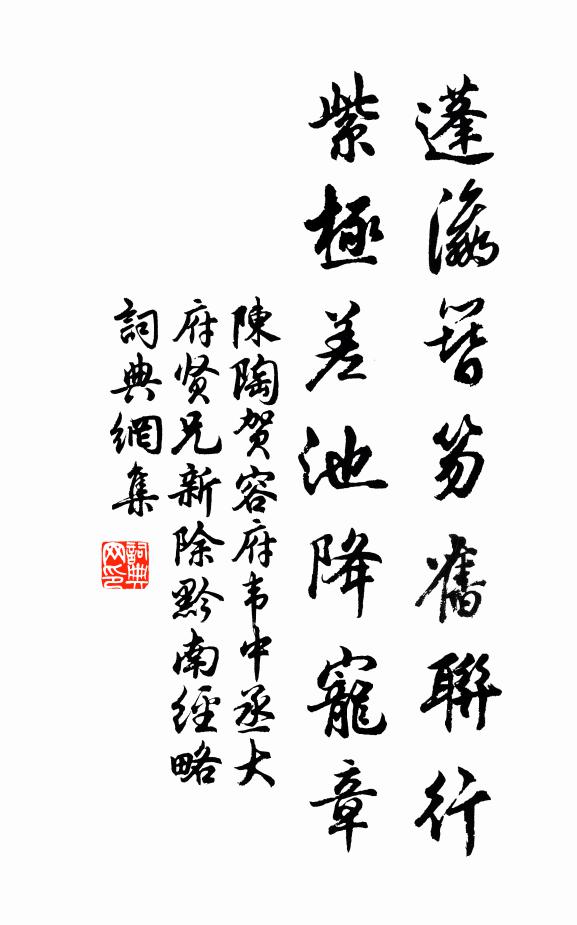 蓬瀛簪笏舊聯行
紫極差池降寵章
陳陶贺容府韦中丞大
府贤兄新除黔南經略
詞典網集
詞典
网